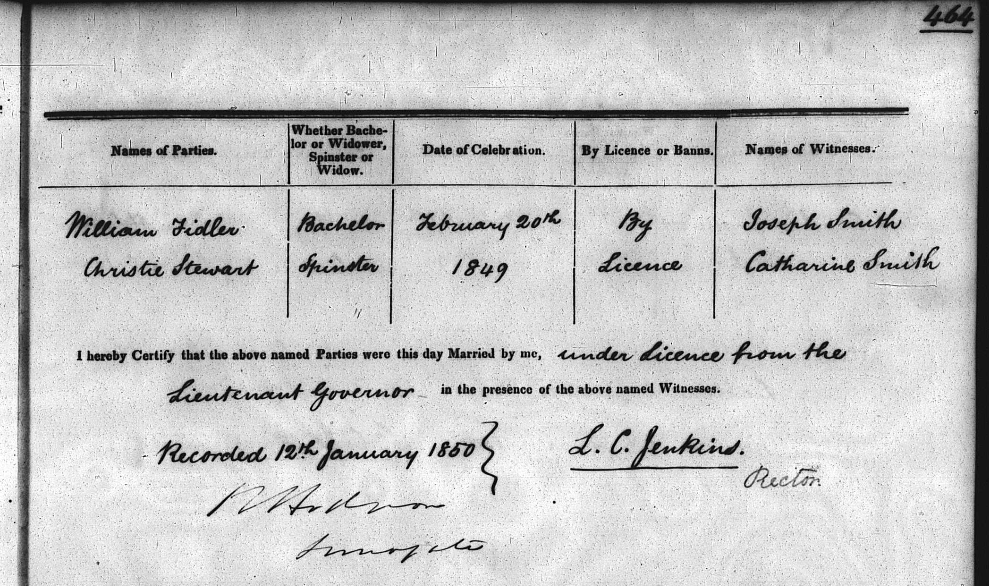 464
Names of Parties. Whether Bache-
lor or Widower,
Spinster or
Widow. Date of Celebration. By Licence or Banns. Names of Witnesses.
William Fidler Bachelor February 20th By Joseph Smith
Christie Stewart Spinster 1849 Licence Catharine Smith
I hereby Certify that the above named Parties were this day Married by me, under Licence from the
Lieutenant Governor in the presence of the above named Witnesses.
Recorded 12th January 1850 L. C. Jenkins.
Rector
Surrogate